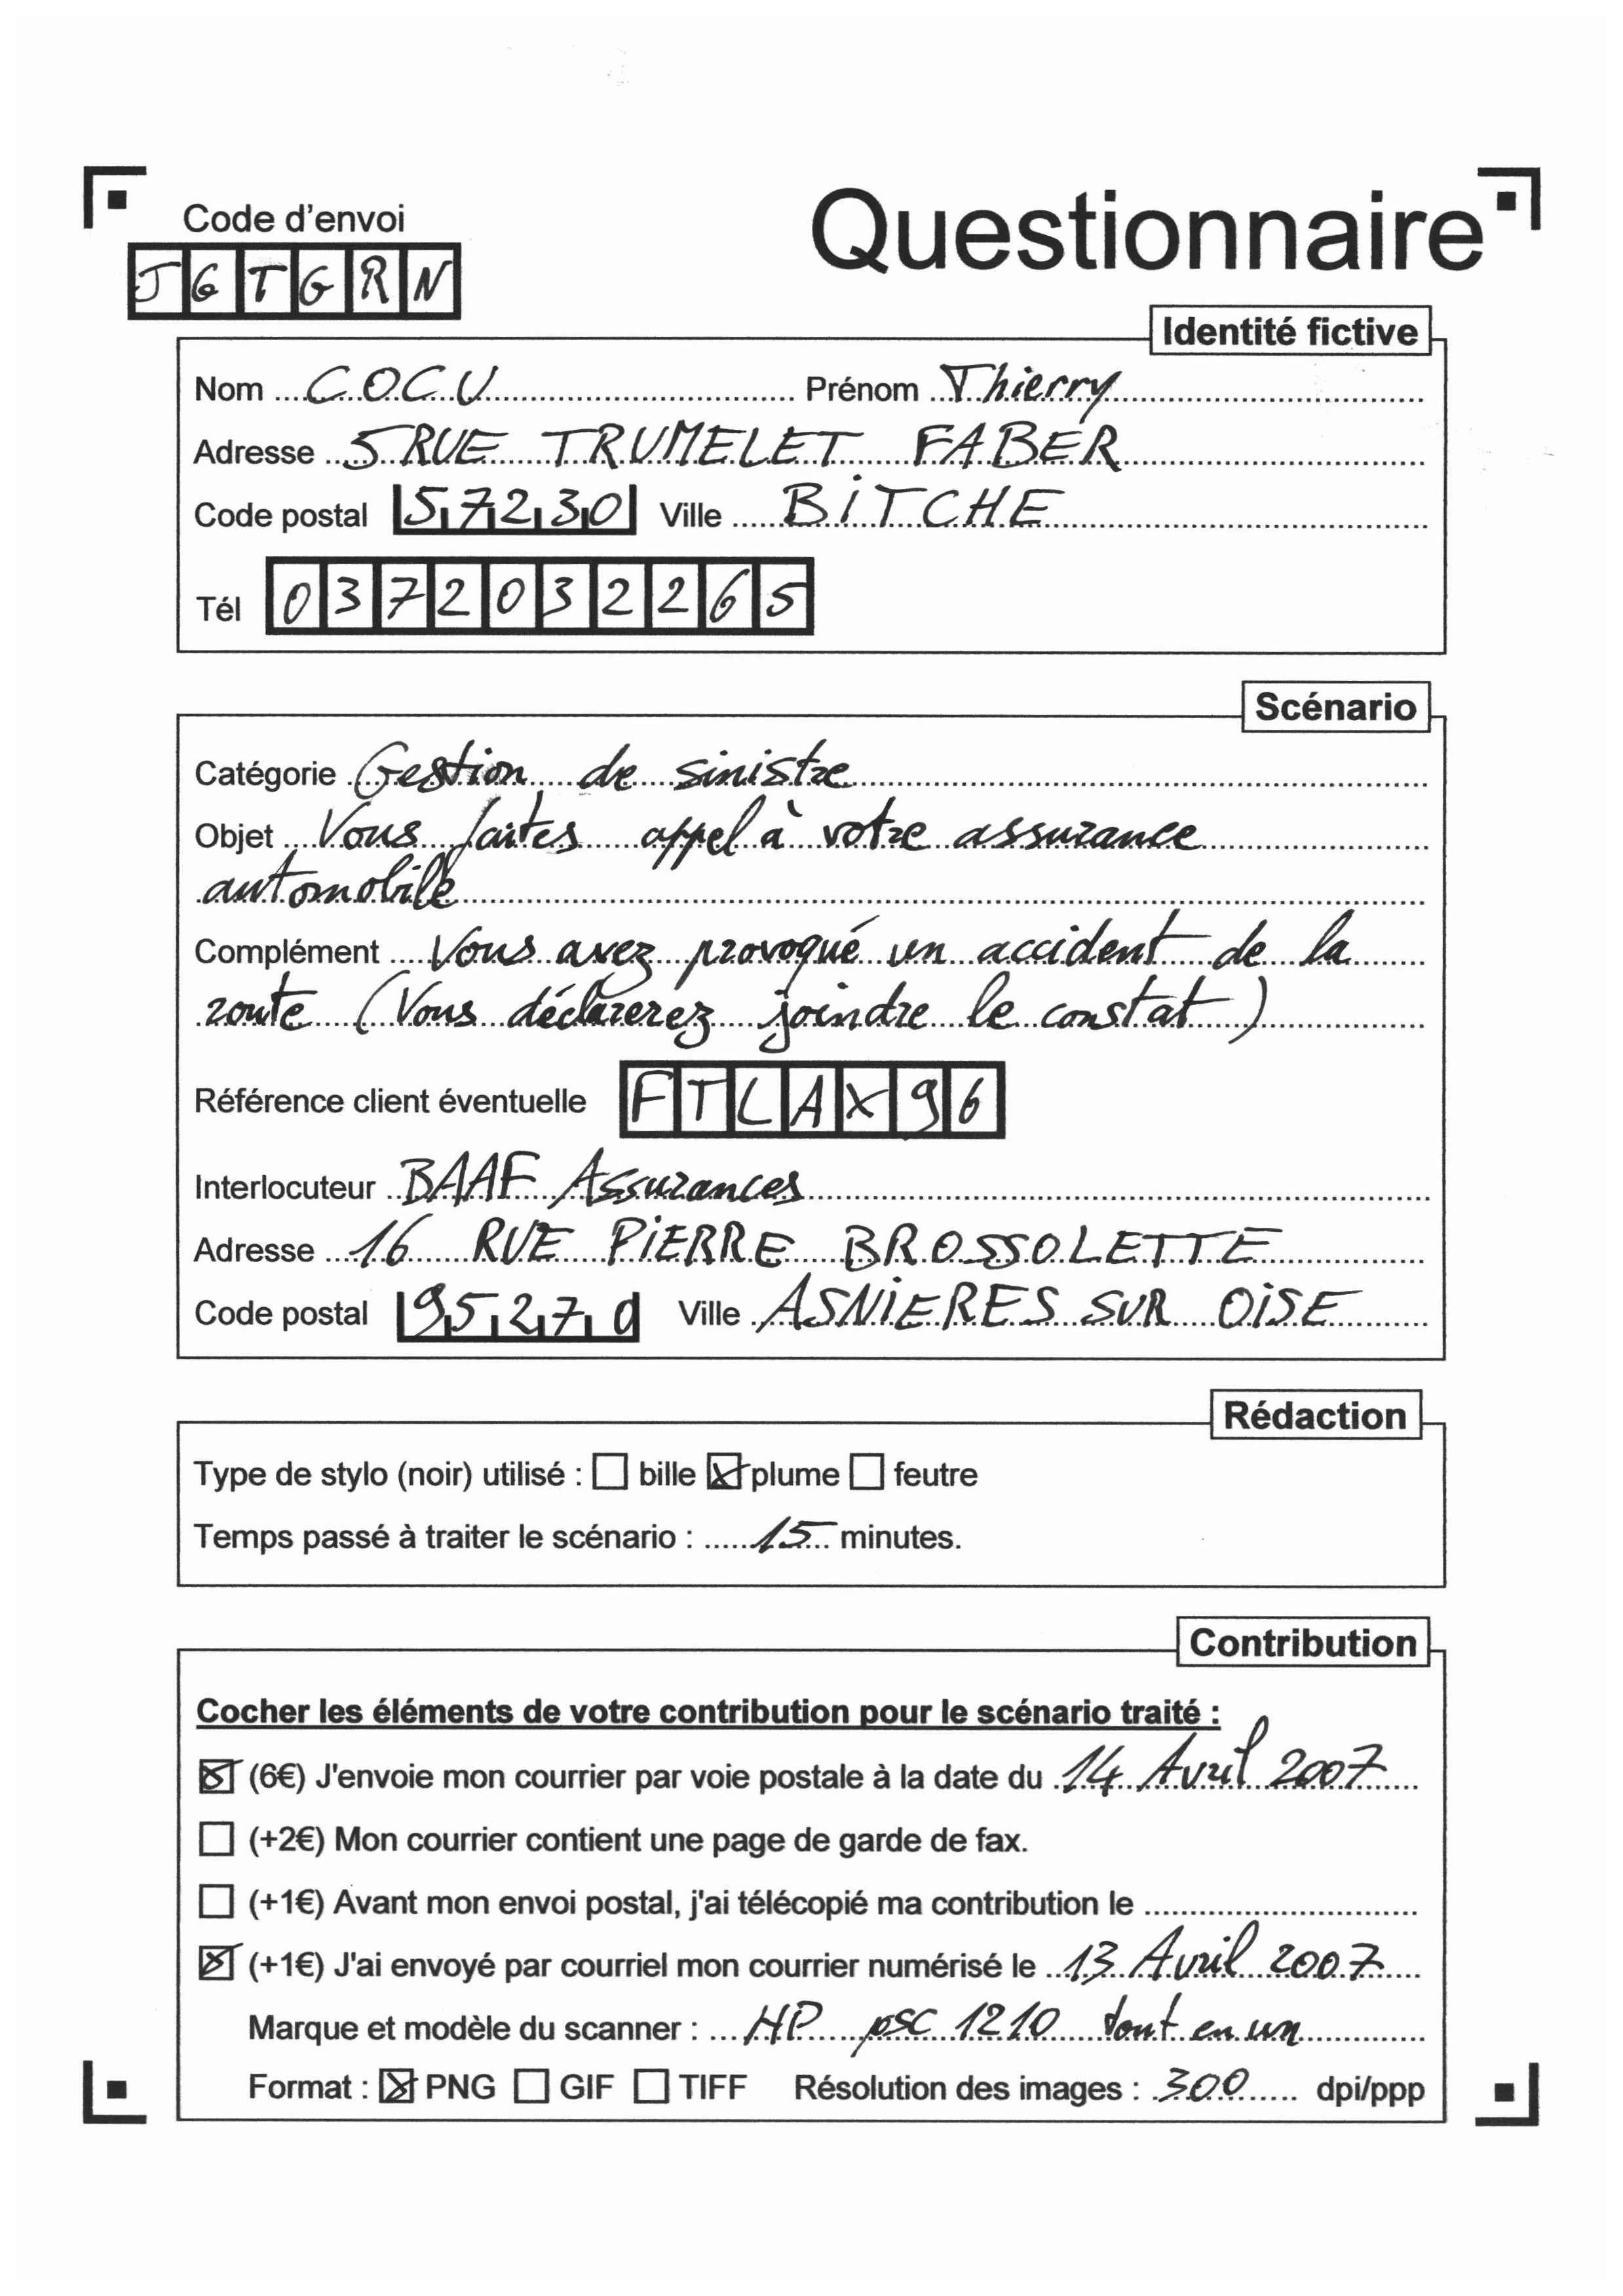 Questionnaire
Code d'envoi
JGTGRN
Identité fictive
Nom COCU Prénom Thierry
Adresse 5 RUE TRUMELET FABER
Code postal 57230 Ville BiTCHE
Tél 0372032265
Scénario
Catégorie Gestion de sinistre
Objet Vous faites appel à votre assurance
automobile
Complément Vous avez provoqué un accident de la
route (Vous déclarerez joindre le constat)
Référence client éventuelle FTLAX96
Interlocuteur BAAF Assurances
Adresse 16 RUE PiERRE BROSSOLETTE
Code postal 95270 Ville ASNiERES SUR OiSE
Rédaction
Type de stylo (noir) utilisé : ☐ bille ☒ plume ☐ feutre
Temps passé à traiter le scénario : 15 minutes.
Contribution
Cocher les éléments de votre contribution pour le scénario traité :
☒ (6€) J'envoie mon courrier par voie postale à la date du 14 Avril 2007
☐ (+2€) Mon courrier contient une page de garde de fax.
☐ (+1€) Avant mon envoi postal, j'ai télécopié ma contribution le
☒ (+1€) J'ai envoyé par courriel mon courrier numérisé le 13 Avril 2007
Marque et modèle du scanner : HP psc 1210 tout en un
Format : ☒ PNG ☐ GIF ☐ TIFF Résolution des images : 300 dpi/ppp